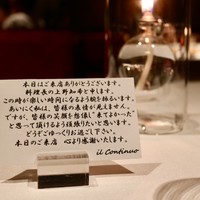 本日はご来店ありがとうございます。
料理長の上野知希と申します。
この時が楽しい時間になるよう腕を揮います。
あいにく私は、皆様の表情が見えません。
ですが、皆様の笑顔を想像し"来てよかった"
と思って頂けるよう頑張りたいと思います。
どうぞごゆっくりお過ごし下さい。
本日のご来店　心より感謝いたします。
il Continuo